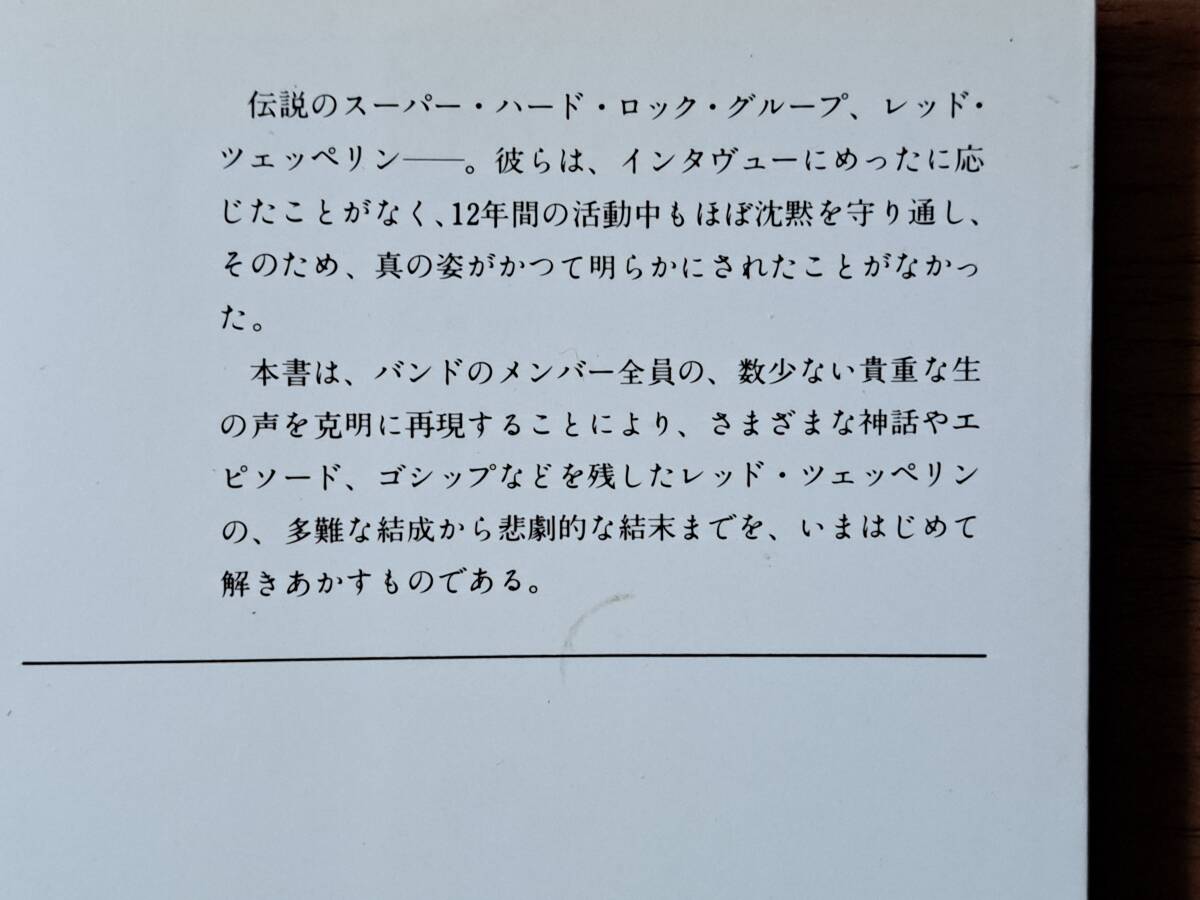 伝説のスーパー・ハード・ロック・グループ、レッド・
ツェッペリン――。彼らは、インタヴューにめったに応
じたことがなく、12年間の活動中もほぼ沈黙を守り通し、
そのため、真の姿がかつて明らかにされたことがなかっ
た。
本書は、バンドのメンバー全員の、数少ない貴重な生
の声を克明に再現することにより、さまざまな神話やエ
ピソード、ゴシップなどを残したレッド・ツェッペリン
の、多難な結成から悲劇的な結末までを、いまはじめて
解きあかすものである。